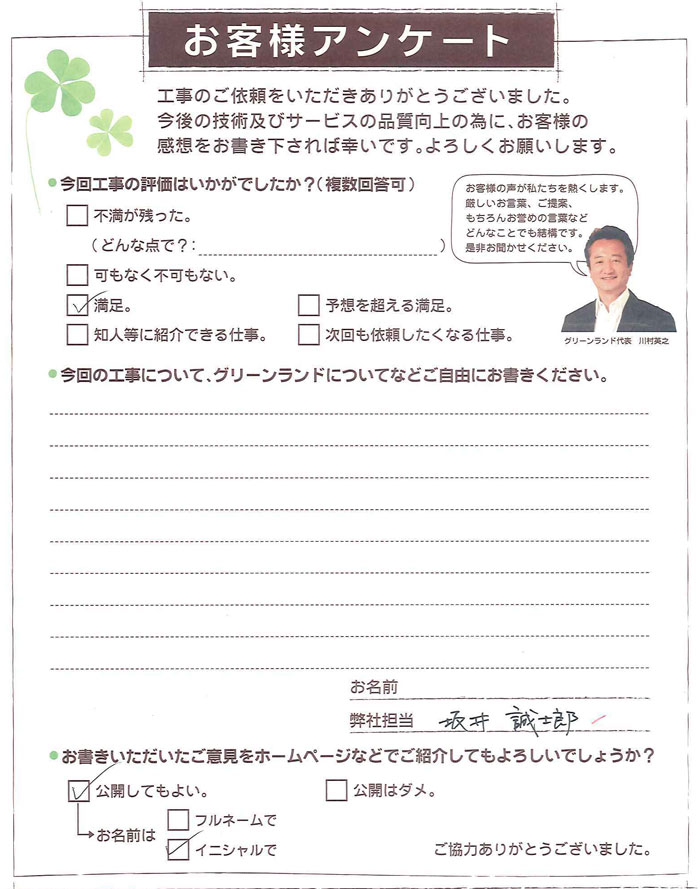 お客様アンケート
工事のご依頼をいただきありがとうございました。
今後の技術及びサービスの品質向上の為に、お客様の
感想をお書き下されば幸いです。よろしくお願いします。
●今回工事の評価はいかがでしたか？（複数回答可）
不満が残った。
（どんな点で？：　）
可もなく不可もない。
満足。
予想を超える満足。
知人等に紹介できる仕事。
次回も依頼したくなる仕事。
お客様の声が私たちを熱くします。
厳しいお言葉、ご提案、
もちろんお誉めの言葉など
どんなことでも結構です。
是非お聞かせください。
グリーンランド代表　川村英之
●今回の工事について、グリーンランドについてなどご自由にお書きください。
お名前
弊社担当　坂井　誠士郎
●お書きいただいたご意見をホームページなどでご紹介してもよろしいでしょうか？
公開してもよい。
公開はダメ。
お名前は
フルネームで
イニシャルで
ご協力ありがとうございました。